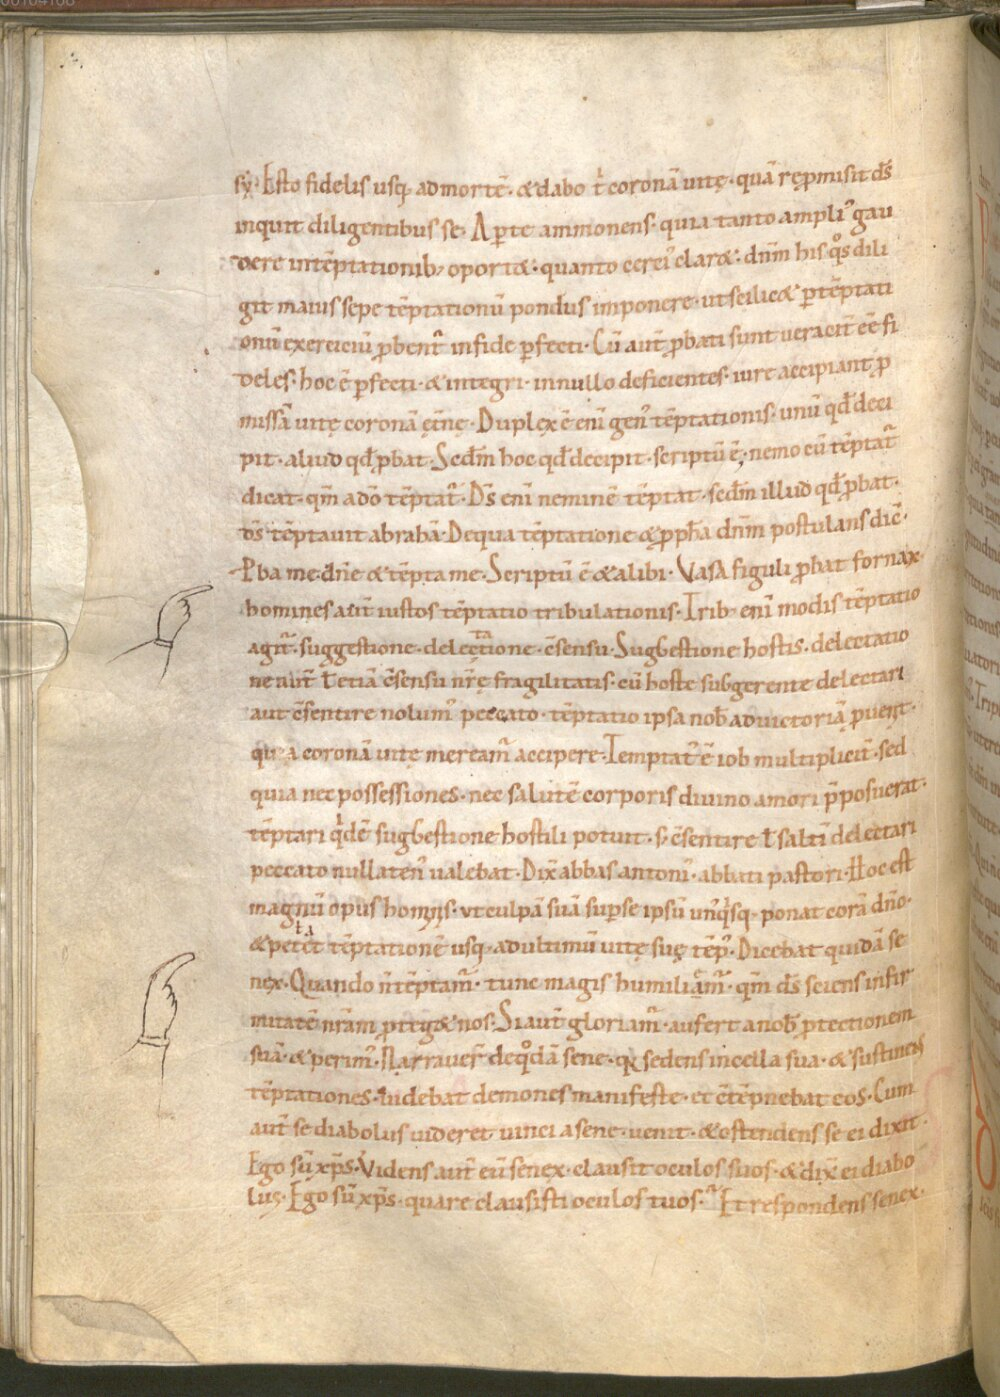 sẏ. Esto fidelis usq; ad mortē. & dabo t̓ coronā uitę. quā rep̱misit d̄s
inquit diligentibus se. Aperte ammonens. quia tanto ampli᷒ gau
dere in tēptationib; oport&. quanto cerci᷒ clar&. dn̄m his q̊s dili
git maius sepe tēptationū pondus imponere. ut scilic& ꝑ tēptati
onū exerciciū ꝓbent᷑ in fide ꝑfecti. Cū aut̄ ꝓbati sunt ueracit̄ ēe fi
deles. hoc ē ꝑfecti. & integri. in nullo deficientes. iure accipiant ꝓ
missā uitę coronā ęt̄nę. Duplex ē eni̅ gen᷒ tēptationis. unū qd̄ deci
pit. aliud qd̄ ꝓbat. Scd̄m hoc qd̄ decipit. scriptū ē; nemo cū tēptat᷑
dicat. qm̄ a dō tēptat᷑. D̄s eni̅ neminē tēptat. scd̄m illud qd̄ ꝓbat.
d̄s tēptauit abrahā. De qua tēptatione & ꝓph̄a dn̄m postulans dic̄.
P̱ba me dn̄e & tēpta me. Scriptū ē & alibi. Vasa figuli ꝓbat fornax.
homines aut̄ iustos tēptatio tribulationis. Trib; eni̅ modis tēptatio
agit᷑. suggestione. delectatione. c̄sensu. Sugbestione hostis. delectatio
ne aut̄ ł etiā c̄sensu nr̄ę fragilitatis. cū hoste subgerente delectari
aut c̄sentire nolum᷒ peccato. tēptatio ipsa nob̄ ad uictoriā ꝓuenit.
qua coronā uitę meream᷑ accipere. Temptat᷒ ē iob multiplicit̄. sed
quia nec possessiones. nec salutē corporis diuino amori p̄posuerat.
tēptari q̓dē sugbestione hostili potuit. s; c̄sentire ł saltī delectari
peccato nullaten᷒ ualebat. Dix̄ abbas antoni᷒. abbati pastori. Hoc est
magnū opus hominis. ut culpā suā sup̱ se ipsū unq̓sq; ponat corā dn̄o.
& petet tēptationē usq; ad ultimū uitę suę tēp᷒. Dicebat quidā se
nex. Quando n̄ tēptam᷑. tunc magis humiliam᷑. qm̄ d̄s sciens infir
mitatē nr̄am ꝓteg& nos. Si aut̄ gloriam᷑. aufert a nob̄ ꝓtectionem
suā. & perim᷒. Narrauer̄ de q̊dā sene. qꝫ sedens in cella sua. & sustinens
tēptationes. uidebat demones manifeste. et c̄tēpnebat eos. Cum
aut̄ se diabolus uideret uinci a sene. uenit. & ostendens se ei dixit.
Ego sū xp̄s. Videns aut̄ eū senex. clausit oculos suos. & dix̄ ei diabo
lus. Ego sū xp̄s. quare clausisti oculos tuos. Et respondens senex.